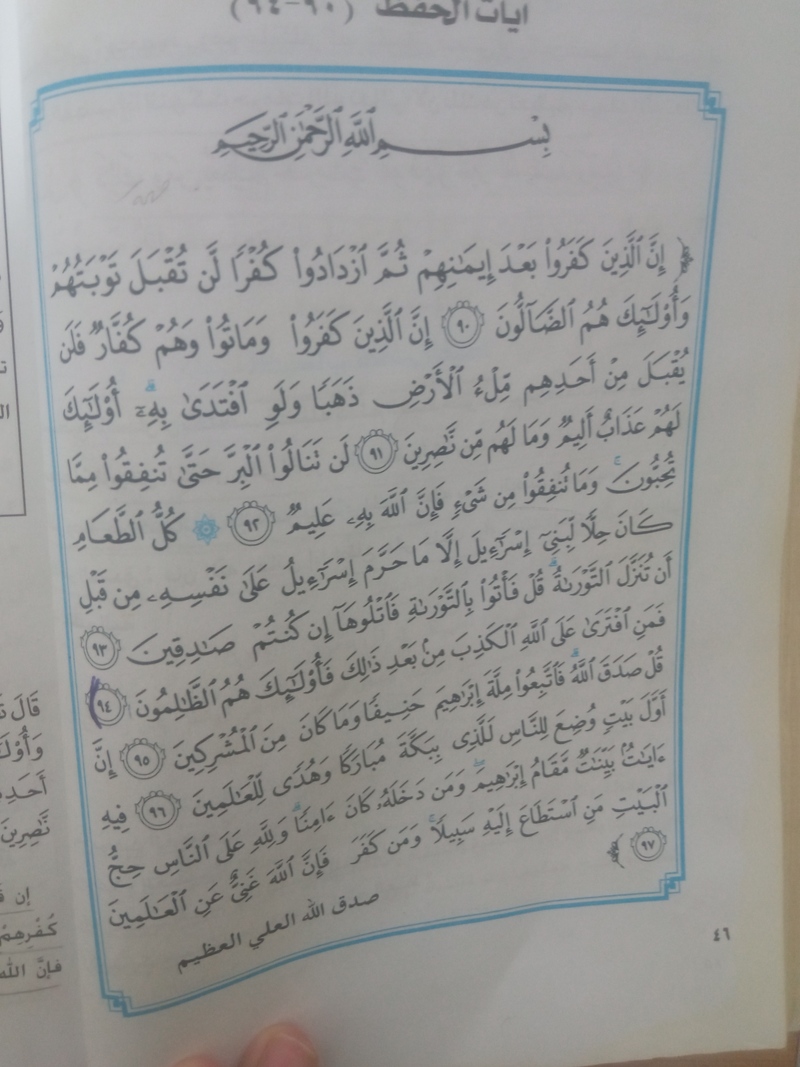 آيات الحفظ (٩٠-٩٤)
بِسْمِ ٱللَّهِ ٱلرَّحْمَٰنِ ٱلرَّحِيمِ
﴿ إِنَّ ٱلَّذِينَ كَفَرُوا۟ بَعْدَ إِيمَٰنِهِمْ ثُمَّ ٱزْدَادُوا۟ كُفْرًا لَّن تُقْبَلَ تَوْبَتُهُمْ
وَأُو۟لَٰٓئِكَ هُمُ ٱلضَّآلُّونَ ٩٠ إِنَّ ٱلَّذِينَ كَفَرُوا۟ وَمَاتُوا۟ وَهُمْ كُفَّارٌ فَلَن
يُقْبَلَ مِنْ أَحَدِهِم مِّلْءُ ٱلْأَرْضِ ذَهَبًا وَلَوِ ٱفْتَدَىٰ بِهِۦٓ ۗ أُو۟لَٰٓئِكَ
لَهُمْ عَذَابٌ أَلِيمٌ وَمَا لَهُم مِّن نَّٰصِرِينَ ٩١ لَن تَنَالُوا۟ ٱلْبِرَّ حَتَّىٰ تُنفِقُوا۟ مِمَّا
تُحِبُّونَ ۚ وَمَا تُنفِقُوا۟ مِن شَىْءٍ فَإِنَّ ٱللَّهَ بِهِۦ عَلِيمٌ ٩٢ ۞ كُلُّ ٱلطَّعَامِ
كَانَ حِلًّا لِّبَنِىٓ إِسْرَٰٓءِيلَ إِلَّا مَا حَرَّمَ إِسْرَٰٓءِيلُ عَلَىٰ نَفْسِهِۦ مِن قَبْلِ
أَن تُنَزَّلَ ٱلتَّوْرَىٰةُ ۗ قُلْ فَأْتُوا۟ بِٱلتَّوْرَىٰةِ فَٱتْلُوهَآ إِن كُنتُمْ صَٰدِقِينَ ٩٣
فَمَنِ ٱفْتَرَىٰ عَلَى ٱللَّهِ ٱلْكَذِبَ مِنۢ بَعْدِ ذَٰلِكَ فَأُو۟لَٰٓئِكَ هُمُ ٱلظَّٰلِمُونَ ٩٤
قُلْ صَدَقَ ٱللَّهُ ۗ فَٱتَّبِعُوا۟ مِلَّةَ إِبْرَٰهِيمَ حَنِيفًا وَمَا كَانَ مِنَ ٱلْمُشْرِكِينَ ٩٥ إِنَّ
أَوَّلَ بَيْتٍ وُضِعَ لِلنَّاسِ لَلَّذِى بِبَكَّةَ مُبَارَكًا وَهُدًى لِّلْعَٰلَمِينَ ٩٦ فِيهِ
ءَايَٰتٌۢ بَيِّنَٰتٌ مَّقَامُ إِبْرَٰهِيمَ ۖ وَمَن دَخَلَهُۥ كَانَ ءَامِنًا ۗ وَلِلَّهِ عَلَى ٱلنَّاسِ حِجُّ
ٱلْبَيْتِ مَنِ ٱسْتَطَاعَ إِلَيْهِ سَبِيلًا ۚ وَمَن كَفَرَ فَإِنَّ ٱللَّهَ غَنِىٌّ عَنِ ٱلْعَٰلَمِينَ
٩٧ ﴾
صدق الله العلي العظيم
٤٦
قَالَ
أَحَدِ
نَّٰصِرِينَ
إن
كُفْرِهِمْ
فإنَّ الله